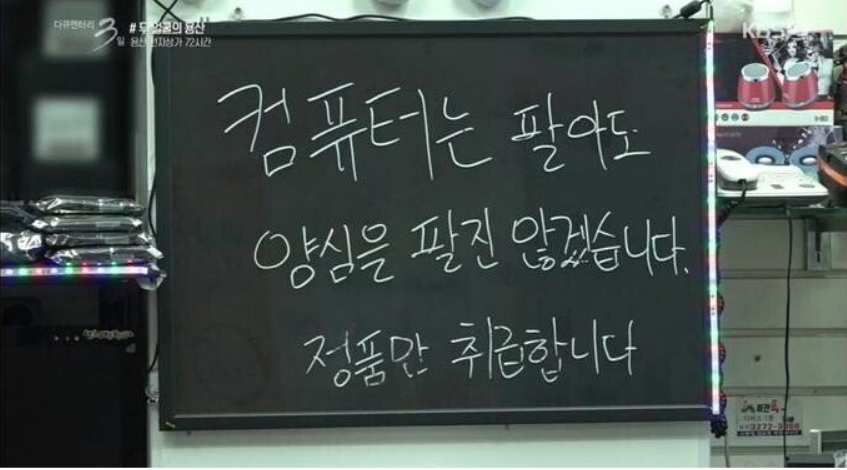 다큐멘터리
3일
# 두 얼굴의 용산
용산 전자상가 72시간
컴퓨터는 팔아도
양심을 팔진 않겠습니다.
정품만 취급합니다